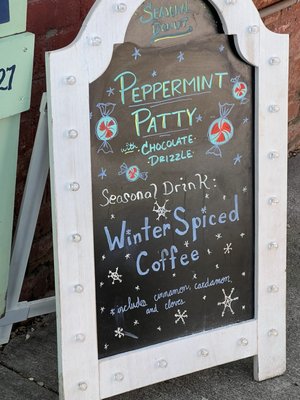 Seasonal
Donut
27
Peppermint
Patty
with Chocolate
Drizzle
Seasonal Drink:
Winter Spiced
Coffee
*includes cinnamon, cardamom,
and cloves.